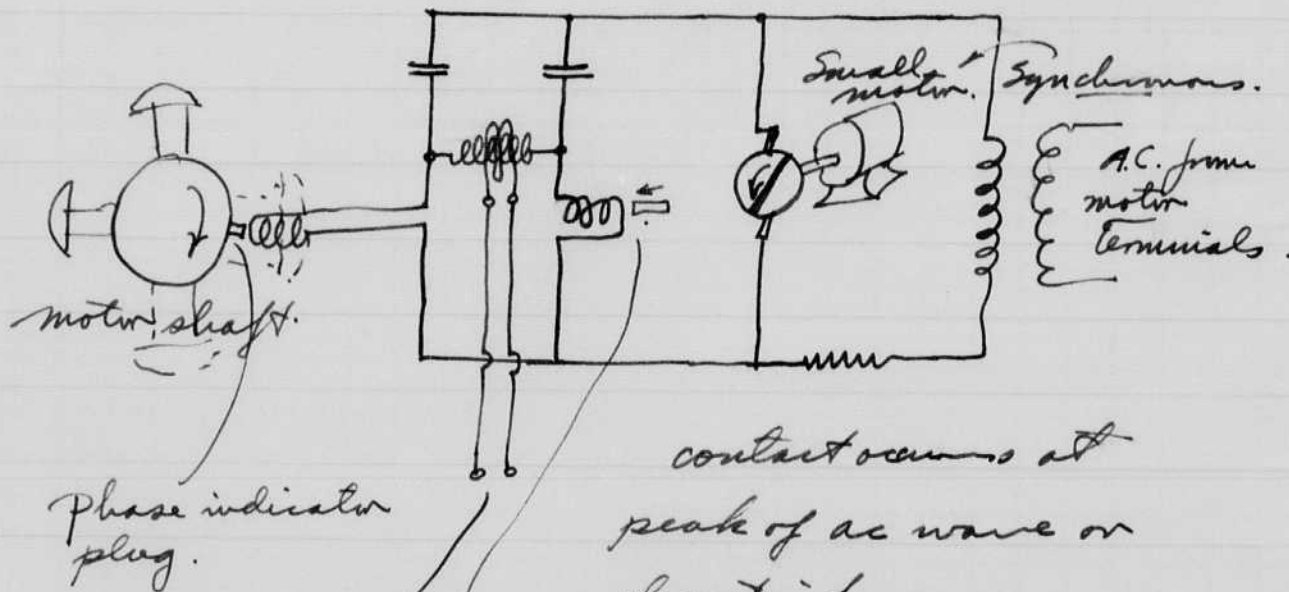 Small
motor. Synchronous.
A.C. from
motor
terminals.
motor shaft.
Phase indicator
plug.
contact occurs at
peak of ac wave or